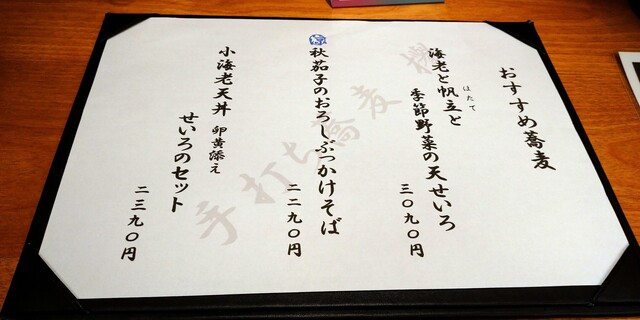 おすすめ蕎麦
海老と帆立と
ほたて
季節野菜の天せいろ
三〇九〇円
秋茄子のおろしぶっかけそば
二二九〇円
小海老天丼 卵黄添え
せいろのセット
二三九〇円
手打ち蕎麦